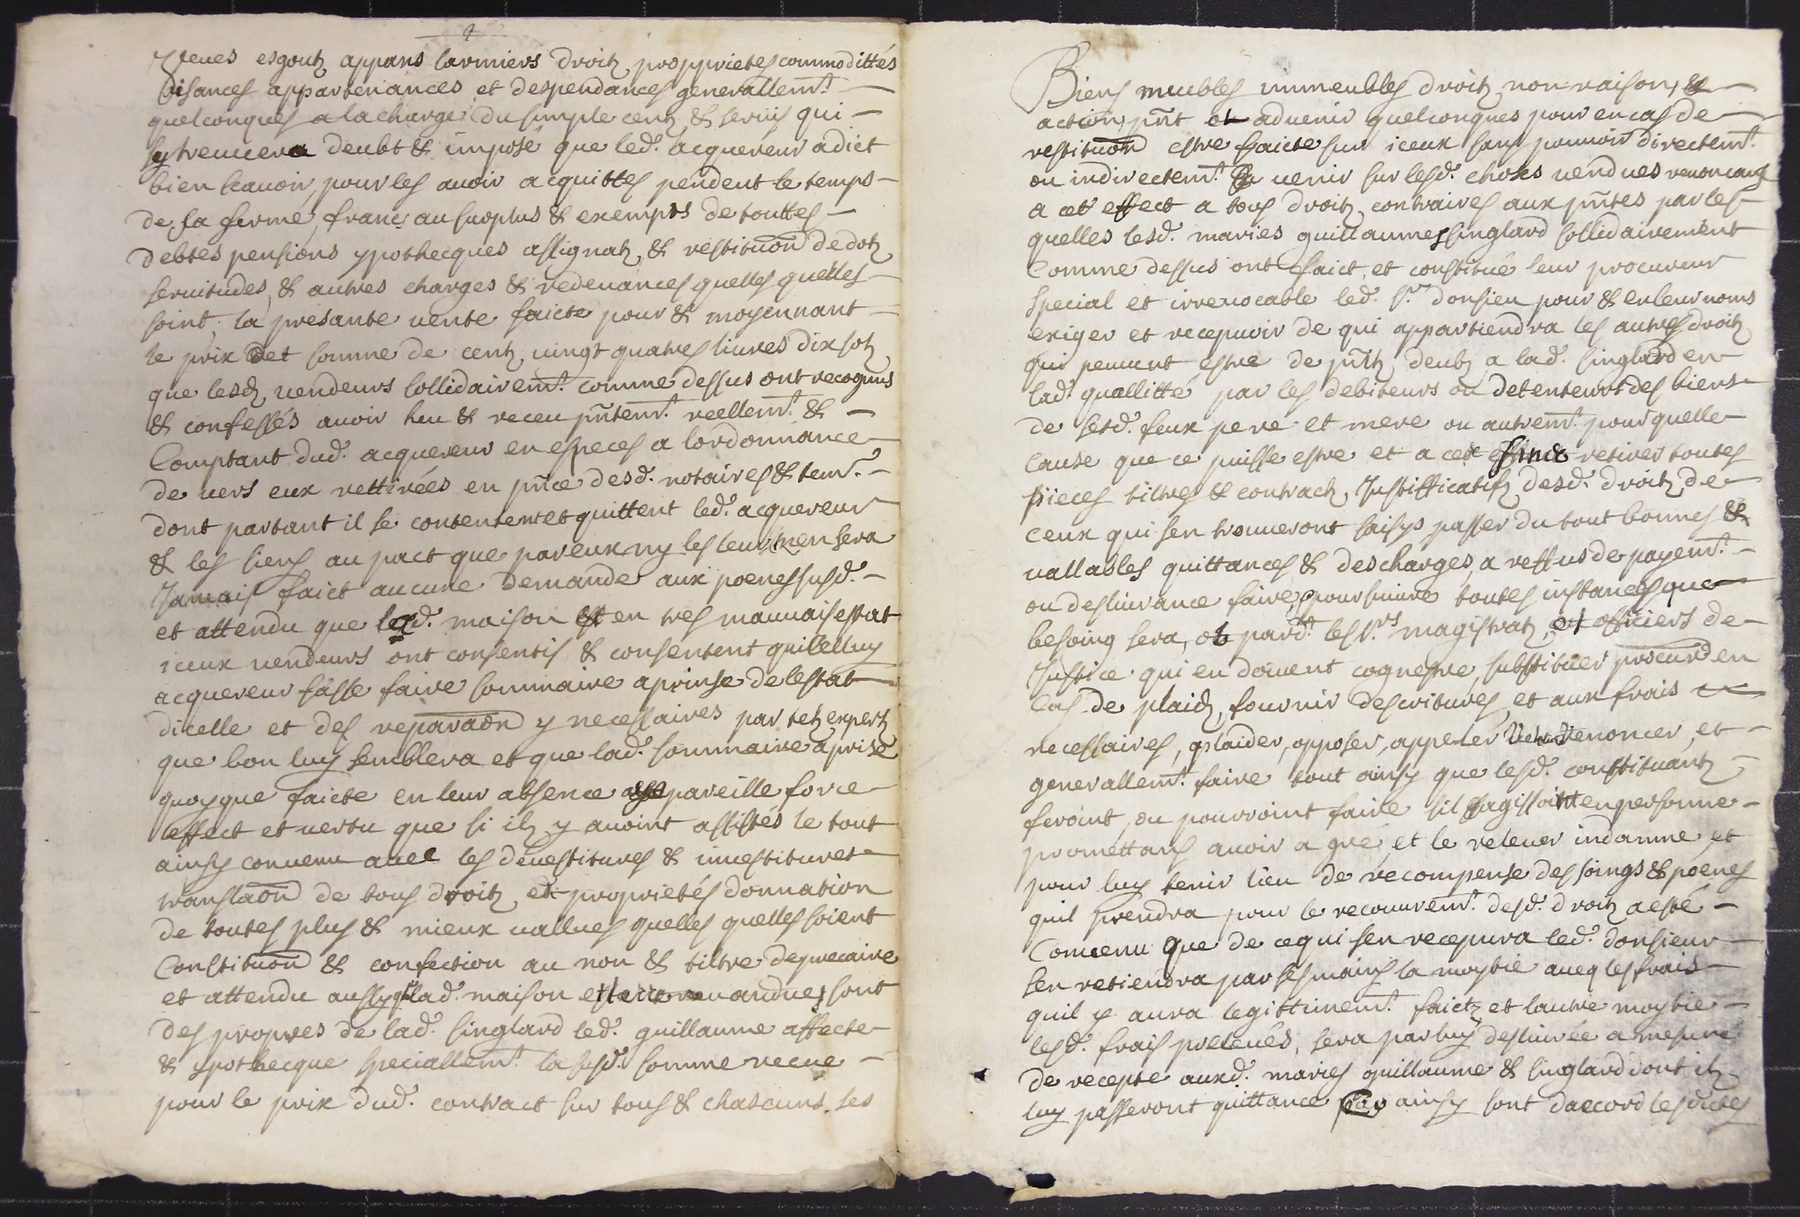 yeues esgoutz appans larmiers droitz proprietes commodittés
aisances appartenances et despendances generallem.t
quelconques a la charge du simple centz & servis qui
sy treuuera deubt & imposé que led. acquereur a dict
bien scauoir, pour les auoir acquittes pendent le temps
de sa ferme, franc au surplus & exempts de touttes
debtes pensions ypothecques assignatz, & restituon de dotz
seruitudes, & autres charges & redeuances quelles quelles
soint, la presante uente faicte pour & moyennant
le prix et somme de centz uingt quatres liures dix solz
que lesd. uendeurs sollidairem.t comme dessus ont recognus
& confessés auoir heu & receu pñtem.t reellem.t &
Comptant dud. acquereur en especes a lordonnance
de uers eux rettirées en pñce desd. notaires & tem.
dont partant il se contentent et quittent led. acquereur
& les siens au pact que par eux ny les leurs nen sera
Jamais faict aucune demande aux poenes susd.
et attendu que lad. maison est en tres mauuais estat
iceux uendeurs ont consentis & consentent quicelluy
acquereur fasse faire sommaire aprinse de lestat
dicelle et des reparaõn y necessaires par telz expertz
que bon luy semblera et que lad. sommaire aprise
quoyque faicte en leur absence aye pareille force
effect et uertu que si ilz y auoint assistés le tout
ainsy conuenu auec les deuestitures & inuestitures
translaõn de tous droitz et proprietés donnation
de toutes plus & mieux uallues quelles quelles soient
Constituõn & confection au nom & tiltre de precaire
et attendu aussy que lad. maison uandues sont
des propres de lad. singlard led. guillaume affecte
& ypothecque speciallem.t la susd. somme receue
pour le prix dud. contract sur tous & chascuns ses
Biens meubles immeubles droitz nom raisons &
actions pñt et aduenir quelconques pour en cas de
restituõn estre faicte sur iceux sans pouuoir directem.t
ou indirectem.t uenir sur lesd. choses uendues renonceantz
a cet effect a tous droitz contraires aux pñtes par les
quelles lesd. maries guillaume & singlard sollidairement
Comme dessus ont faict et constitué leur procureur
special et irreuocable led. s.r donsieu pour & en leur noms
exiger et recepuoir de qui appartiendra les autres droitz
qui peuuent estre de pñt deubz a lad. singlard en
lad. quallitté par les debiteurs ou detenteurs des biens
de sesd. feux pere et mere ou autrem.t pour quelle
cause que ce puisse estre et a ces fins retirer toutes
pieces tiltres & contractz Justifficatifz desd. droitz de
ceux qui sen trouueront saisys passer du tout bonnes &
uallables quittances & descharges, a reffus de payem.t
ou desliurance faire, poursuiure toutes instances que
besoing sera, et pard.t les s.rs magistratz et officiers de
Justice qui en doiuent cognestre, substituer procur.r en
Cas de plaidz, fournir descritures et aux frais
necessaires, plaider, opposer, appeller renoncer, et
generallem.t faire tout ainsy que lesd. constituantz
feroint, ou pourroint faire sil sagissoint en personne
promettans auoir a gré, et le releuer indamne, et
pour luy tenir lieu de recompense des soings & poenes
quil prendra pour le recouurem.t desd. droitz a esté
Conuenu que de ce qui sen recepura led. donsieur
sen retiendra par ses mains la moytie aueq les frais
quil y aura legittimem.t faictz et lautre moytie
lesd. frais preleués, sera par luy desliurée a mesure
de recepte auxd. maries guillaume & singlard dont ilz
luy passeront quittance ainsy sont daccord lesdictes